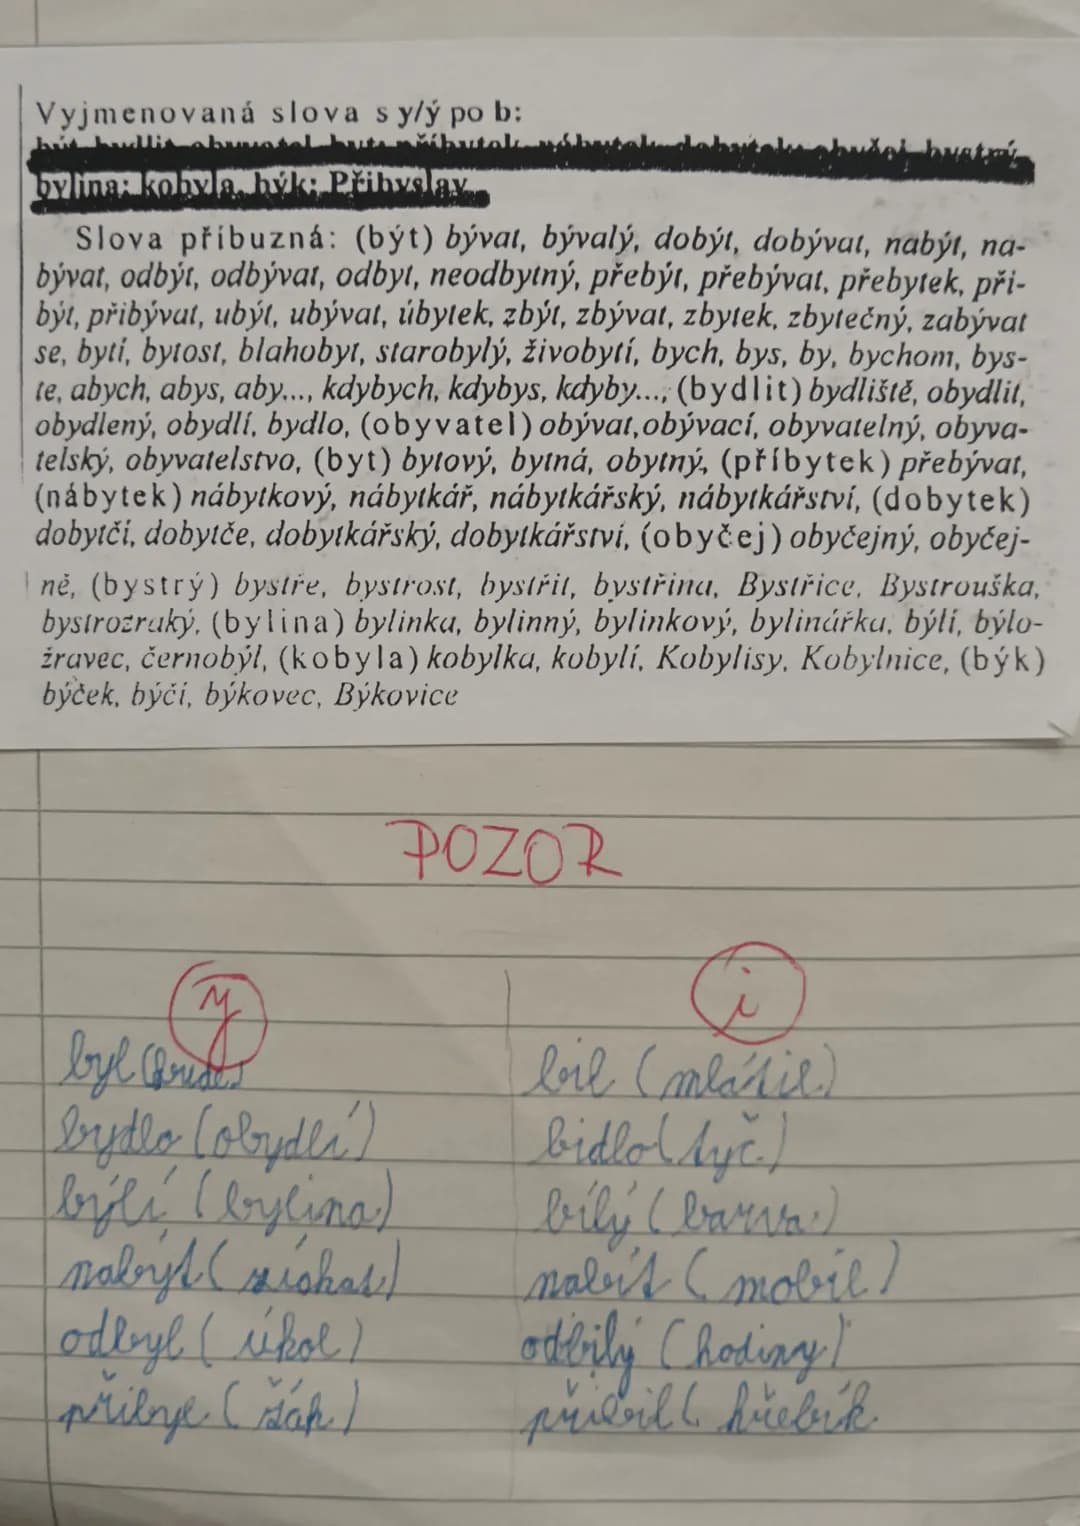 Vyjmenovaná slova s y/ý po b:
být bydlit obyvatel byt příbytek nábytek dobytek obyčej bystrý
bylina; kobyla, býk; Přibyslav
Slova příbuzná: (být) bývat, bývalý, dobýt, dobývat, nabýt, na-
bývat, odbýt, odbývat, odbyt, neodbytný, přebýt, přebývat, přebytek, při-
být, přibývat, ubýt, ubývat, úbytek, zbýt, zbývat, zbytek, zbytečný, zabývat
se, bytí, bytost, blahobyt, starobylý, živobytí, bych, bys, by, bychom, bys-
te, abych, abys, aby..., kdybych, kdybys, kdyby..., (bydlit) bydliště, obydlit,
obydlený, obydlí, bydlo, (obyvatel) obývat, obývací, obyvatelný, obyva-
telský, obyvatelstvo, (byt) bytový, bytná, obytný, (příbytek) přebývat,
(nábytek) nábytkový, nábytkář, nábytkářský, nábytkářství, (dobytek)
dobytčí, dobytče, dobytkářský, dobytkářství, (obyčej) obyčejný, obyčej-
ně, (bystrý) bystře, bystrost, bystřit, bystřina, Bystřice, Bystrouška,
bystrozraký, (bylina) bylinka, bylinný, bylinkový, bylinářka, býlí, býlo-
žravec, černobýl, (kobyla) kobylka, kobylí, Kobylisy, Kobylnice, (býk)
býček, býčí, býkovec, Býkovice
POZOR
y i
byl (bude) bil (mlátil)
bydlo (obydlí) bidlo (tyč)
býlí (bylina) bílý (barva)
nabýt (získat) nabít (mobil)
odbyl (úkol) odbily (hodiny)
přibyl (žák) přibil ( hřebík